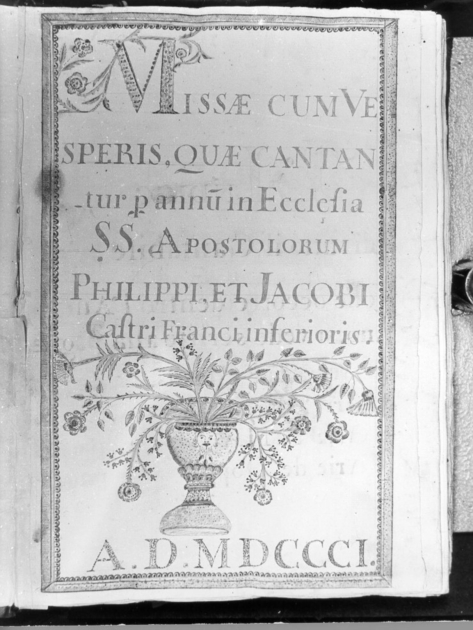 MISSÆ CUM VE
SPERIS, QUÆ CANTAN
tur ꝑ annũ in Ecclesia
SS. APOSTOLORUM
PHILIPPI, ET JACOBI
Castri Franci, inferioris.
A. D. MDCCCI.